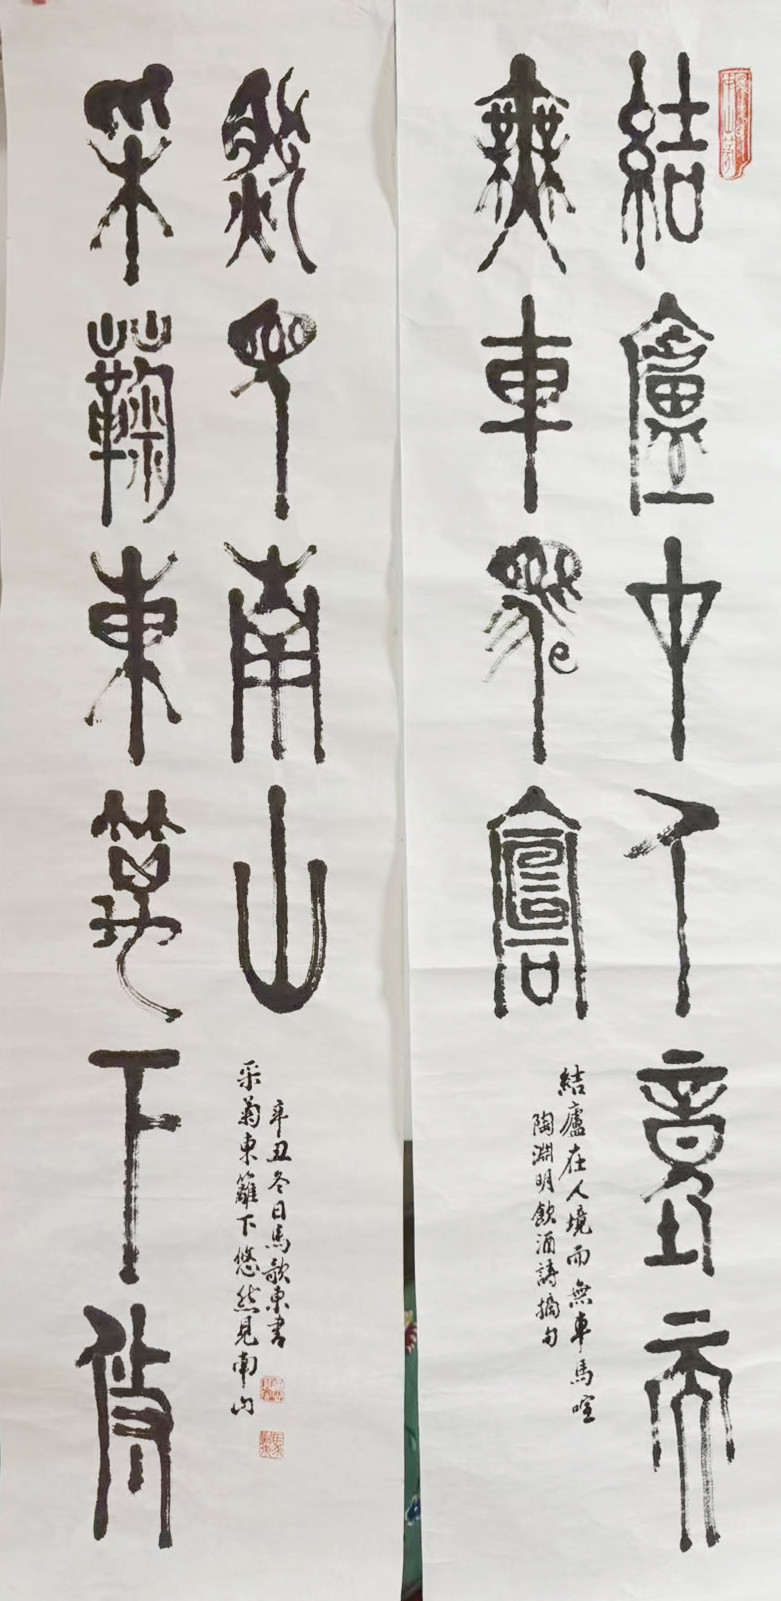 結廬在人境而
無車馬喧
結廬在人境而無車馬喧
陶淵明飲酒詩摘句
采菊東籬下悠
然見南山
采菊東籬下悠然見南山
辛丑冬日馬歆東書